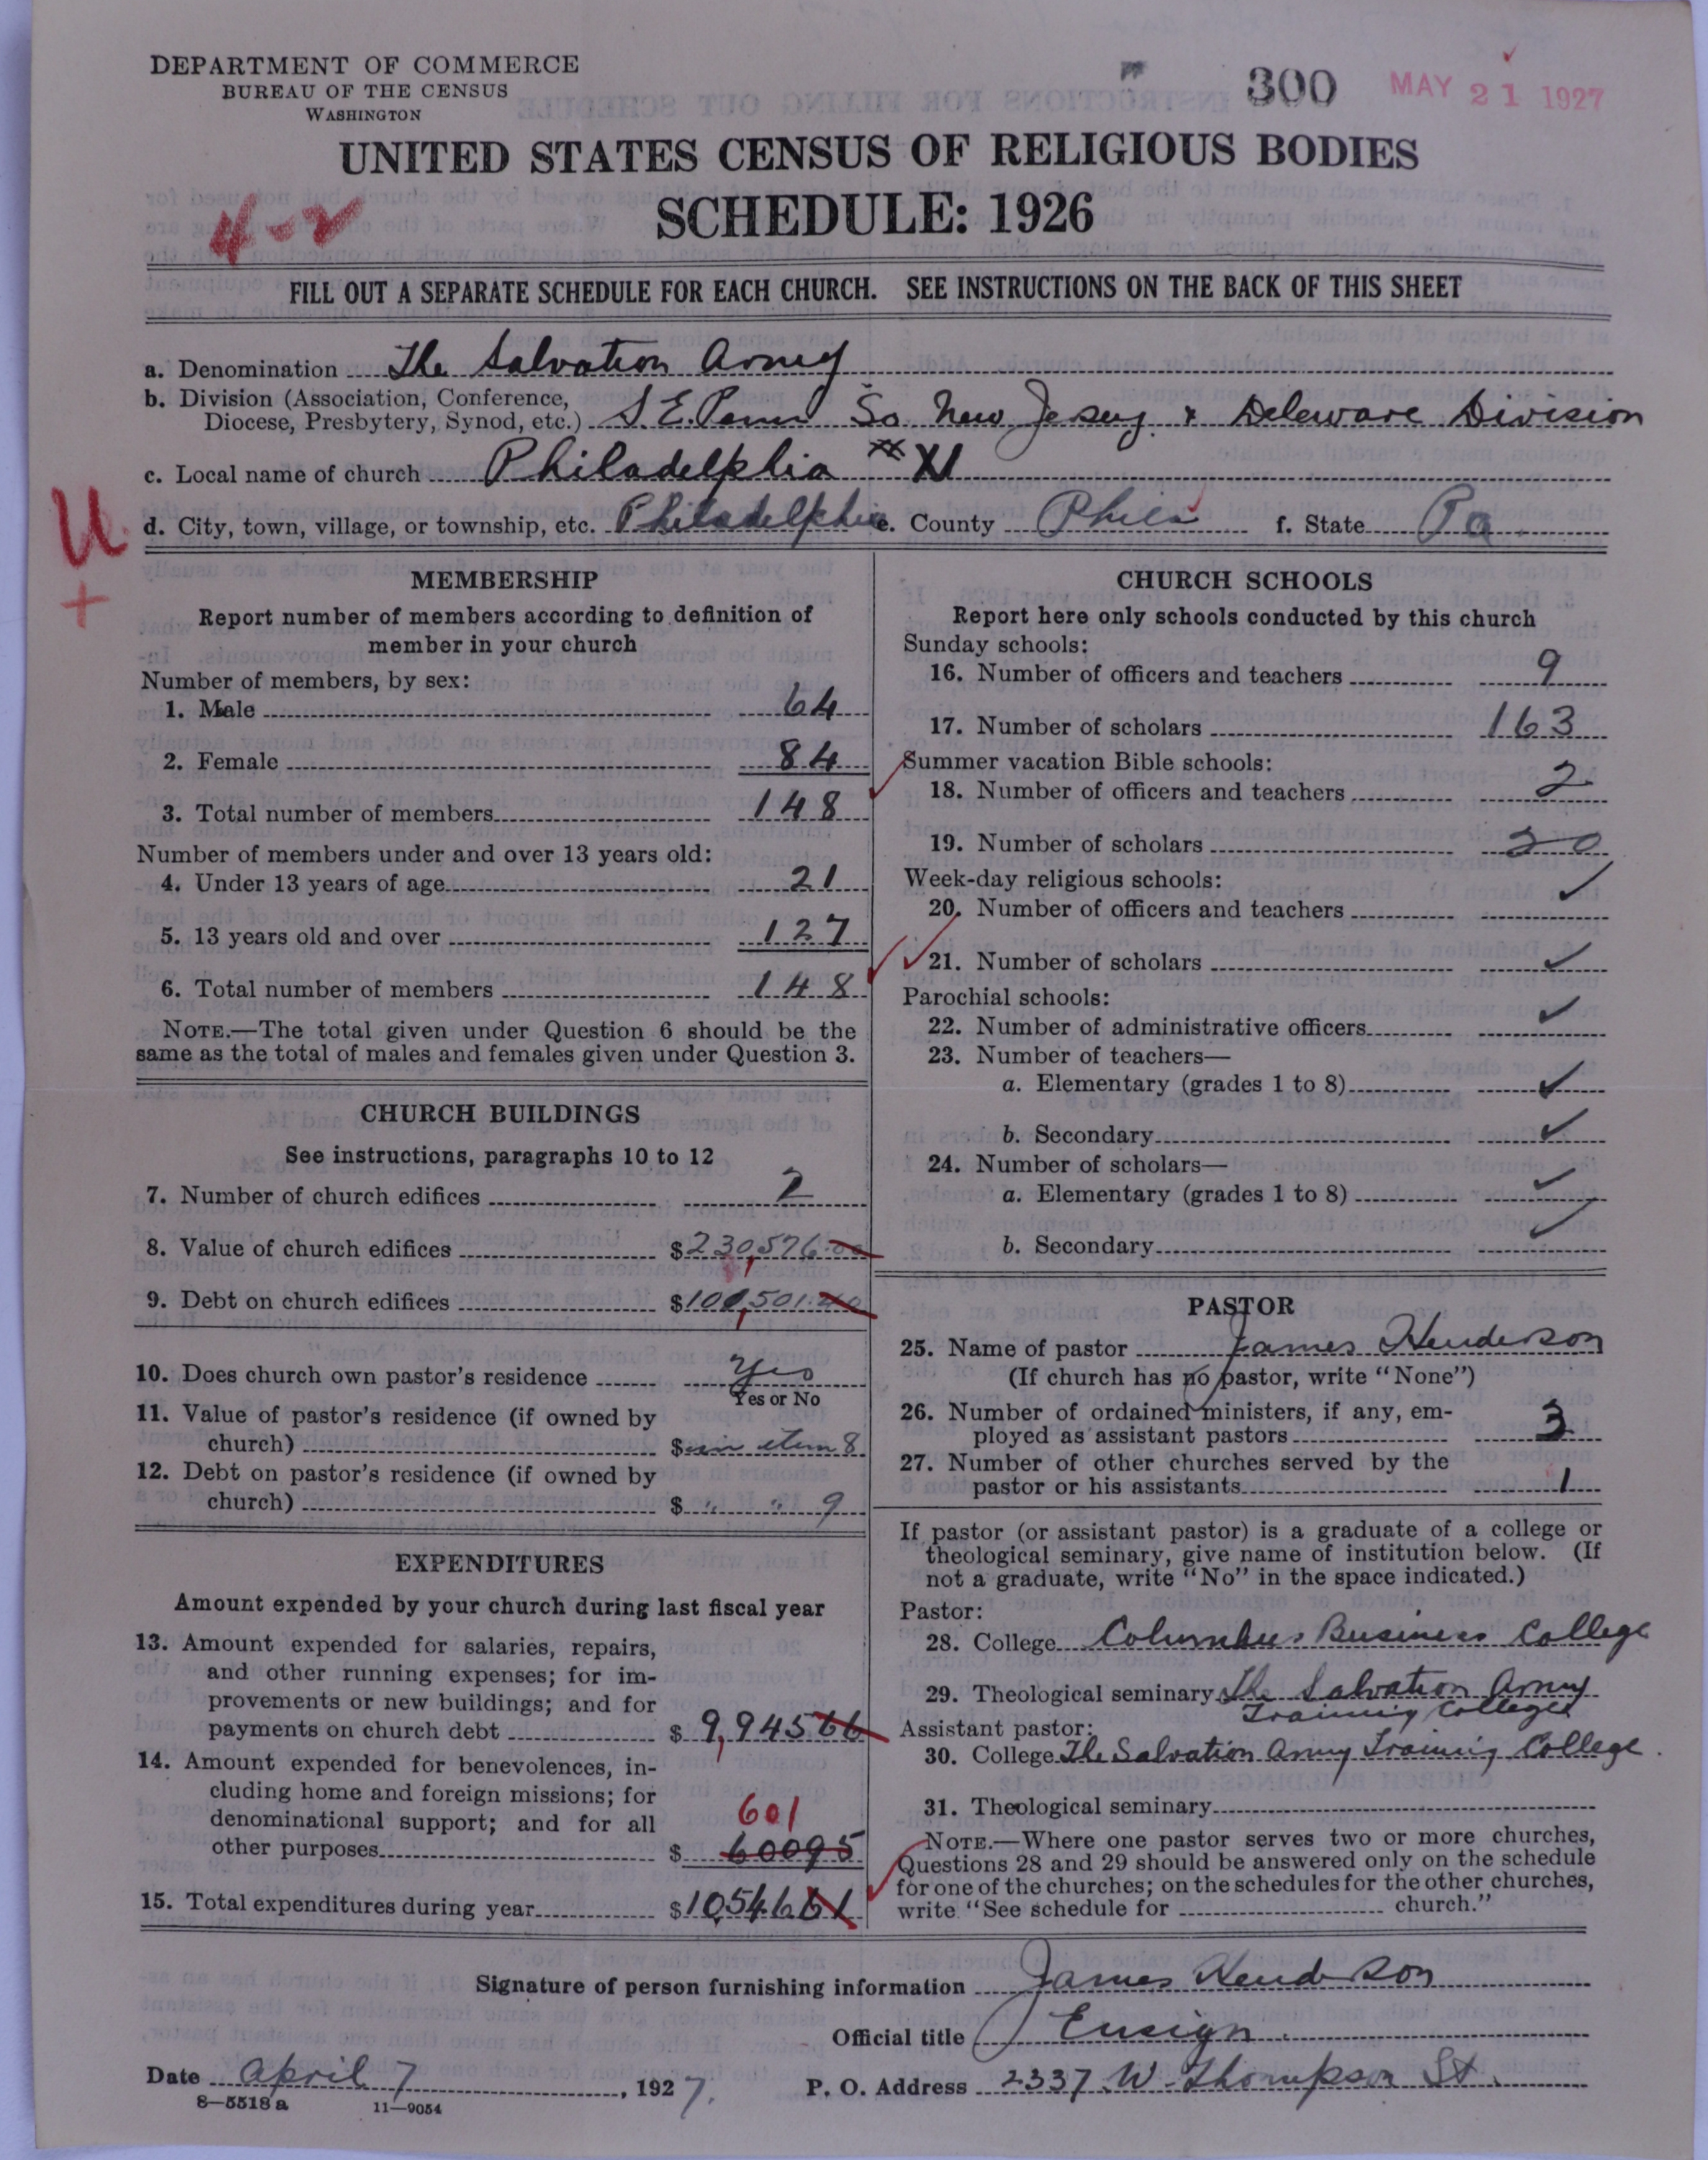 DEPARTMENT OF COMMERCE
BUREAU OF THE CENSUS
WASHINGTON
300 MAY 21 1927
UNITED STATES CENSUS OF RELIGIOUS BODIES
SCHEDULE: 1926
4-2
FILL OUT A SEPARATE SCHEDULE FOR EACH CHURCH. SEE INSTRUCTIONS ON THE BACK OF THIS SHEET
a. Denomination The Salvation Army
b. Division (Association, Conference,
Diocese, Presbytery, Synod, etc.) S.E. Penn So New Jersey & Deleware Division
c. Local name of church Philadelphia # XI
U
+
d. City, town, village, or township, etc. Philadelphia e. County Phila f. State Pa
MEMBERSHIP
Report number of members according to definition of
member in your church
Number of members, by sex:
1. Male 64
2. Female 84
3. Total number of members 148
Number of members under and over 13 years old:
4. Under 13 years of age 21
5. 13 years old and over 127
6. Total number of members 148
NOTE.—The total given under Question 6 should be the
same as the total of males and females given under Question 3.
CHURCH BUILDINGS
See instructions, paragraphs 10 to 12
7. Number of church edifices 2
8. Value of church edifices $230,576.00
9. Debt on church edifices $101,501.40
10. Does church own pastor's residence Yes
Yes or No
11. Value of pastor's residence (if owned by
church) $ in item 8
12. Debt on pastor's residence (if owned by
church) $ " " 9
EXPENDITURES
Amount expended by your church during last fiscal year
13. Amount expended for salaries, repairs,
and other running expenses; for im-
provements or new buildings; and for
payments on church debt $ 9,945 66
14. Amount expended for benevolences, in-
cluding home and foreign missions; for
denominational support; and for all
601
other purposes $ 60095
15. Total expenditures during year $10546 61
CHURCH SCHOOLS
Report here only schools conducted by this church
Sunday schools:
16. Number of officers and teachers 9
17. Number of scholars 163
Summer vacation Bible schools:
18. Number of officers and teachers 2
19. Number of scholars 20
Week-day religious schools:
20. Number of officers and teachers ✓
21. Number of scholars ✓
Parochial schools:
22. Number of administrative officers ✓
23. Number of teachers—
a. Elementary (grades 1 to 8) ✓
b. Secondary ✓
24. Number of scholars—
a. Elementary (grades 1 to 8) ✓
b. Secondary ✓
PASTOR
25. Name of pastor James Henderson
(If church has no pastor, write "None")
26. Number of ordained ministers, if any, em-
ployed as assistant pastors 3
27. Number of other churches served by the
pastor or his assistants 1
If pastor (or assistant pastor) is a graduate of a college or
theological seminary, give name of institution below. (If
not a graduate, write "No" in the space indicated.)
Pastor:
28. College Columbus Business College
29. Theological seminary The Salvation Army
Training College
Assistant pastor:
30. College The Salvation Army Training College
31. Theological seminary
NOTE.—Where one pastor serves two or more churches,
Questions 28 and 29 should be answered only on the schedule
for one of the churches; on the schedules for the other churches,
write "See schedule for church."
Signature of person furnishing information James Henderson
Official title Ensign
Date April 7, 1927. P. O. Address 2337 W. Thompson St.
8-5518 a 11-9054